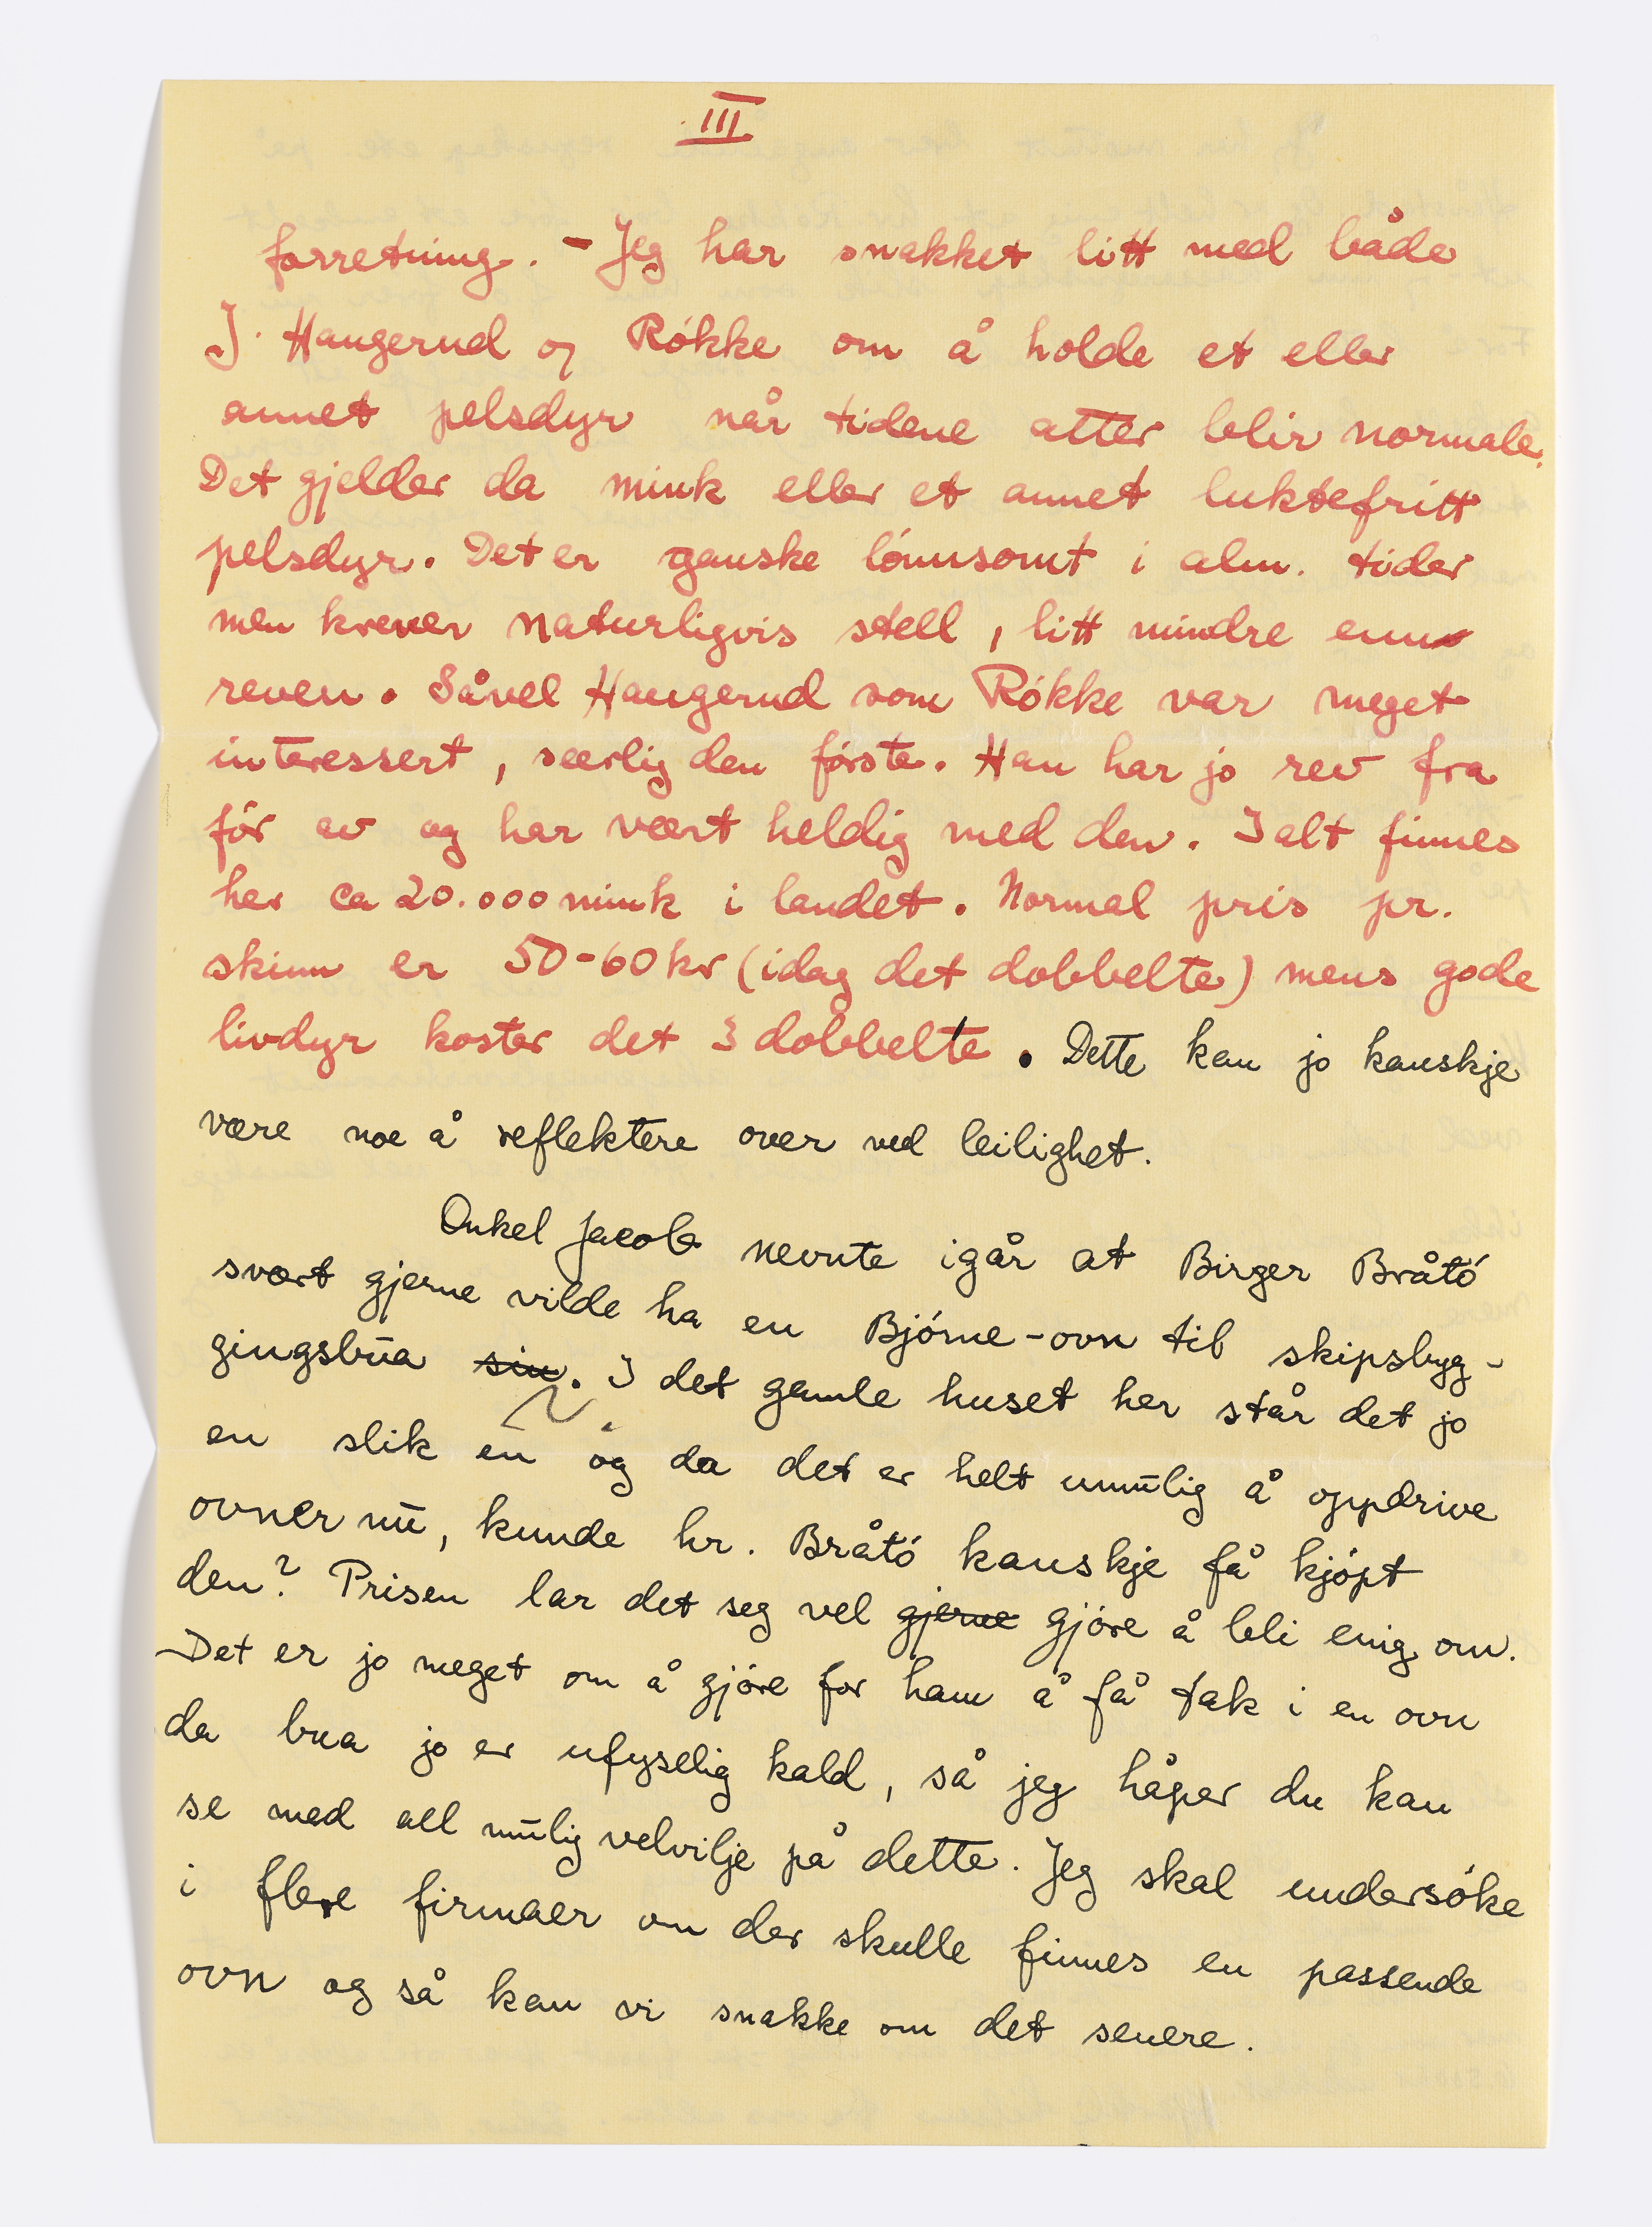 III
forretning. - Jeg har snakket litt med både
J. Haugerud og Rókke om å holde et eller
annet pelsdyr når tidene atter blir normale.
Det gjelder da mink eller et annet luktefritt
pelsdyr. Det er ganske lónnsomt i alm. tider
men krever naturligvis stell, litt mindre enn
reven. Såvel Haugerud som Rókke var meget
interessert, særlig den fórste. Han har jo rev fra
fór av og har vært heldig med den. I alt finnes
her ca 20.000 mink i landet. Normal pris pr.
skinn er 50-60 kr (idag det dobbelte) mens gode
livdyr koster det 3 dobbelte. Dette kan jo kanskje
være noe å reflektere over ved leilighet.
Onkel Jacob nevnte igår at Birger Bråtó
svært gjerne vilde ha en Bjórne-ovn til skipsbyg-
gingsbua sin. I det gamle huset her står det jo
en slik en og da det er helt umulig å oppdrive
ovner nu, kunde hr. Bråtó kanskje få kjópt
den? Prisen lar det seg vel gjerne gjóre å bli enig om.
Det er jo meget om å gjóre for ham å få tak i en ovn
da bua jo er ufyselig kald, så jeg håper du kan
se med all mulig velvilje på dette. Jeg skal undersóke
i flere firmaer om der skulle finnes en passende
ovn og så kan vi snakke om det senere.